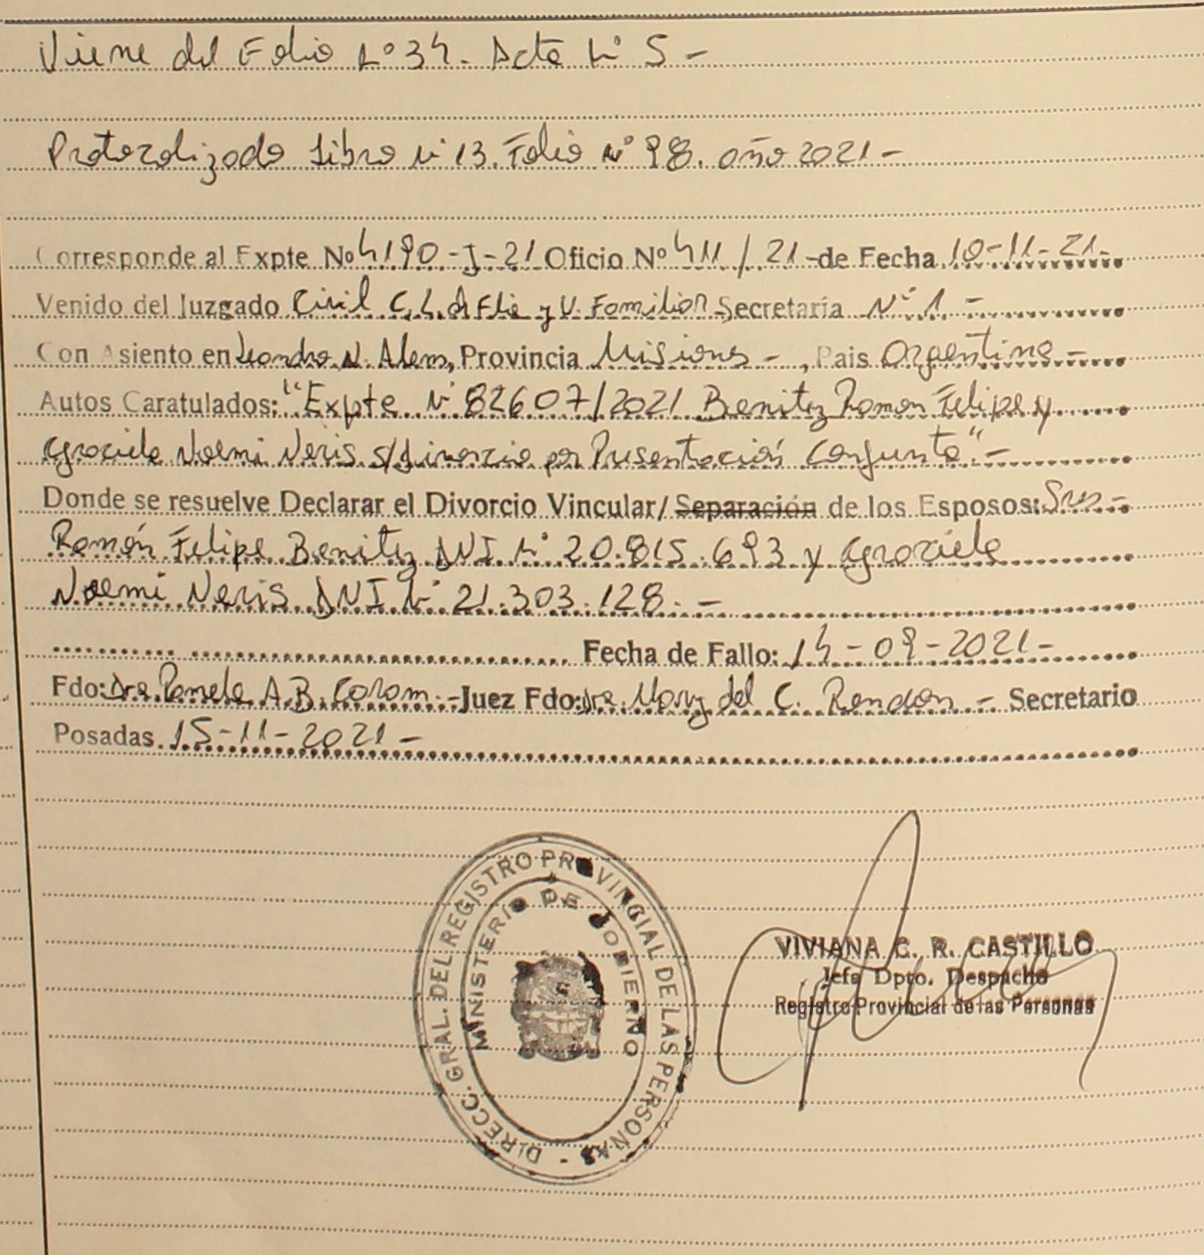 Viene del Folio N° 34. Acta N° 5 -
Protocolizado Libro N° 13. Folio N° 98. año 2021 -
Corresponde al Expte No 4190-J-21 Oficio No 411/21 -de Fecha 10-11-21-
Venido del Juzgado Civil C, L. d Flia y V. Familiar Secretaría N° 1. -
Con Asiento en Leandro N. Alem, Provincia Misiones -, Pais Argentina -
Autos Caratulados: "Expte N° 82607/2021 Benitez Ramon Felipe y
Graciela Noemi Neris s/Divorcio por Presentación Conjunta". -
Donde se resuelve Declarar el Divorcio Vincular/ Separación de los Esposos: Sres -
Ramón Felipe Benitez DNI N° 20.815.693 y Graciela
Noemi Neris DNI N° 21.303.128. -
Fecha de Fallo: 14-09-2021-
Fdo: Dra. Pamela A.B. -Juez Fdo: Dra. Mary del C. Rendon - Secretario
Posadas 15-11-2021-
DIRECC. GRAL. DEL REGISTRO PROVINCIAL DE LAS PERSONAS -
MINISTERIO DE GOBIERNO
VIVIANA C. R. CASTILLO
Jefa Dpto. Despacho
Registro Provincial de las Personas